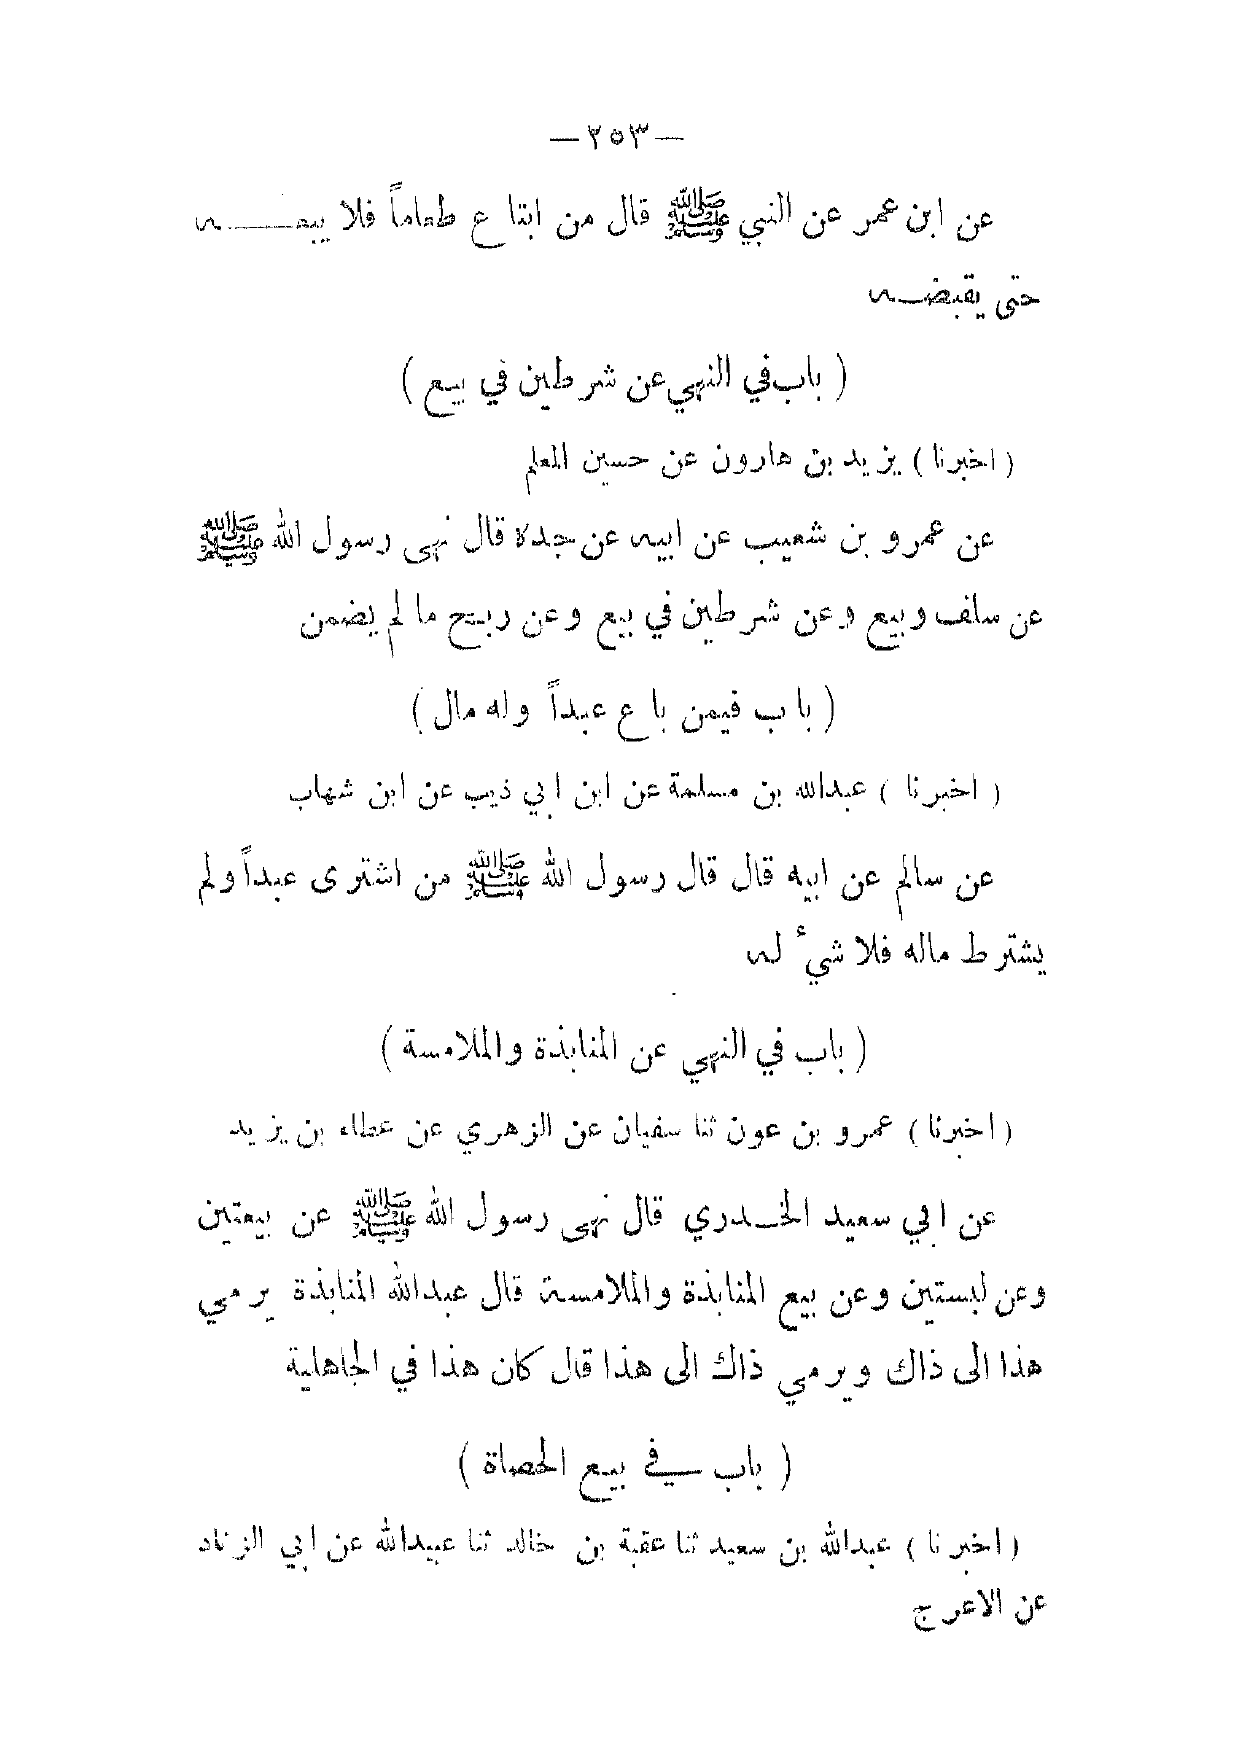 —٢٥٣—
عن ابن عمر عن النبي ﷺ قال من ابتاع طعاماً فلا يبعـــه
حتى يقبضـه
( باب في النهي عن شرطين في بيع )
( اخبرنا ) يزيد بن هارون عن حسين المعلم
عن عمرو بن شعيب عن ابيه عن جده قال نهى رسول الله ﷺ
عن سلف وبيع وعن شرطين في بيع وعن ربح ما لم يضمن
( باب فيمن باع عبداً وله مال )
( اخبرنا ) عبدالله بن مسلمة عن ابن ابي ذيب عن ابن شهاب
عن سالم عن ابيه قال قال رسول الله ﷺ من اشترى عبداً ولم
يشترط ماله فلا شيء له
( باب في النهي عن المنابذة والملامسة )
( اخبرنا ) عمرو بن عون ثنا سفيان عن الزهري عن عطاء بن يزيد
عن ابي سعيد الخـدري قال نهى رسول الله ﷺ عن بيعتين
وعن لبستين وعن بيع المنابذة والملامسة قال عبدالله المنابذة يرمي
هذا الى ذاك ويرمي ذاك الى هذا قال كان هذا في الجاهلية
( باب في بيع الحصاة )
( اخبرنا ) عبدالله بن سعيد ثنا عقبة بن خالد ثنا عبيدالله عن ابي الزناد
عن الاعرج